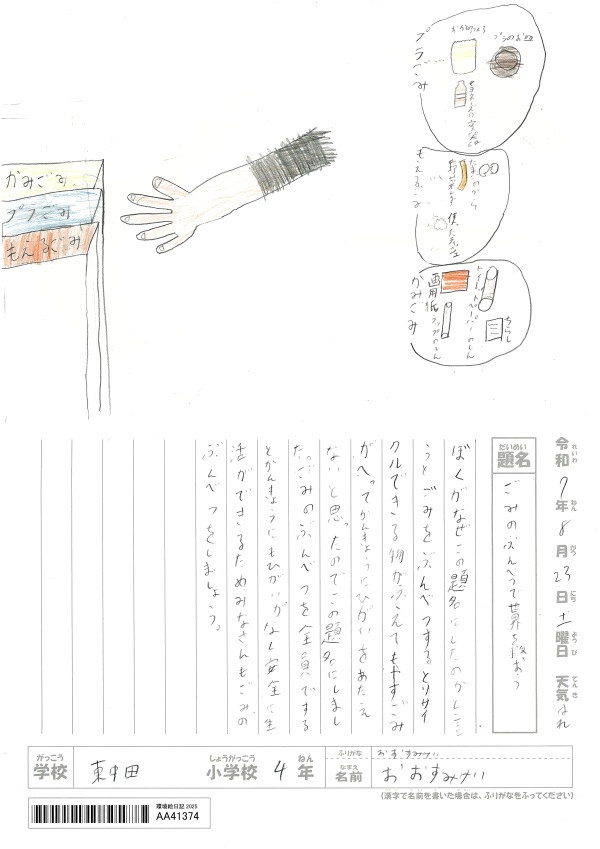 プラごみ
おかしのふくろ
プラのお皿
マヨネーズの空袋
もえるごみ
たまごのから
野さいくず
使ったティッシュ
かみごみ
画用紙
トイレットペーパーのしん
ラップのしん
ちらし
かみごみ
プラごみ
もえるごみ
令和7年8月23日土曜日 天気はれ
れいわ ねん がつ にち ようび てんき
だいめい
題名
ごみのぶんべつで世界を救おう
ぼくがなぜこの題名にしたのかとい
うとごみをぶんべつするとリサイ
クルできる物がふえてもやすごみ
がへってかんきょうにひがいをあたえ
ないと思ったのでこの題名にしまし
た。ごみのぶんべつを全員でする
とかんきょうにもひがいがなく安全に生
活ができるためみなさんもごみの
ぶんべつをしましょう。
がっこう しょうがっこう ねん ふりがな おおすみかい
学校 東中田 小学校 4年 なまえ 名前 おおすみかい
(漢字で名前を書いた場合は、ふりがなをふってください)
環境絵日記 2025
AA41374